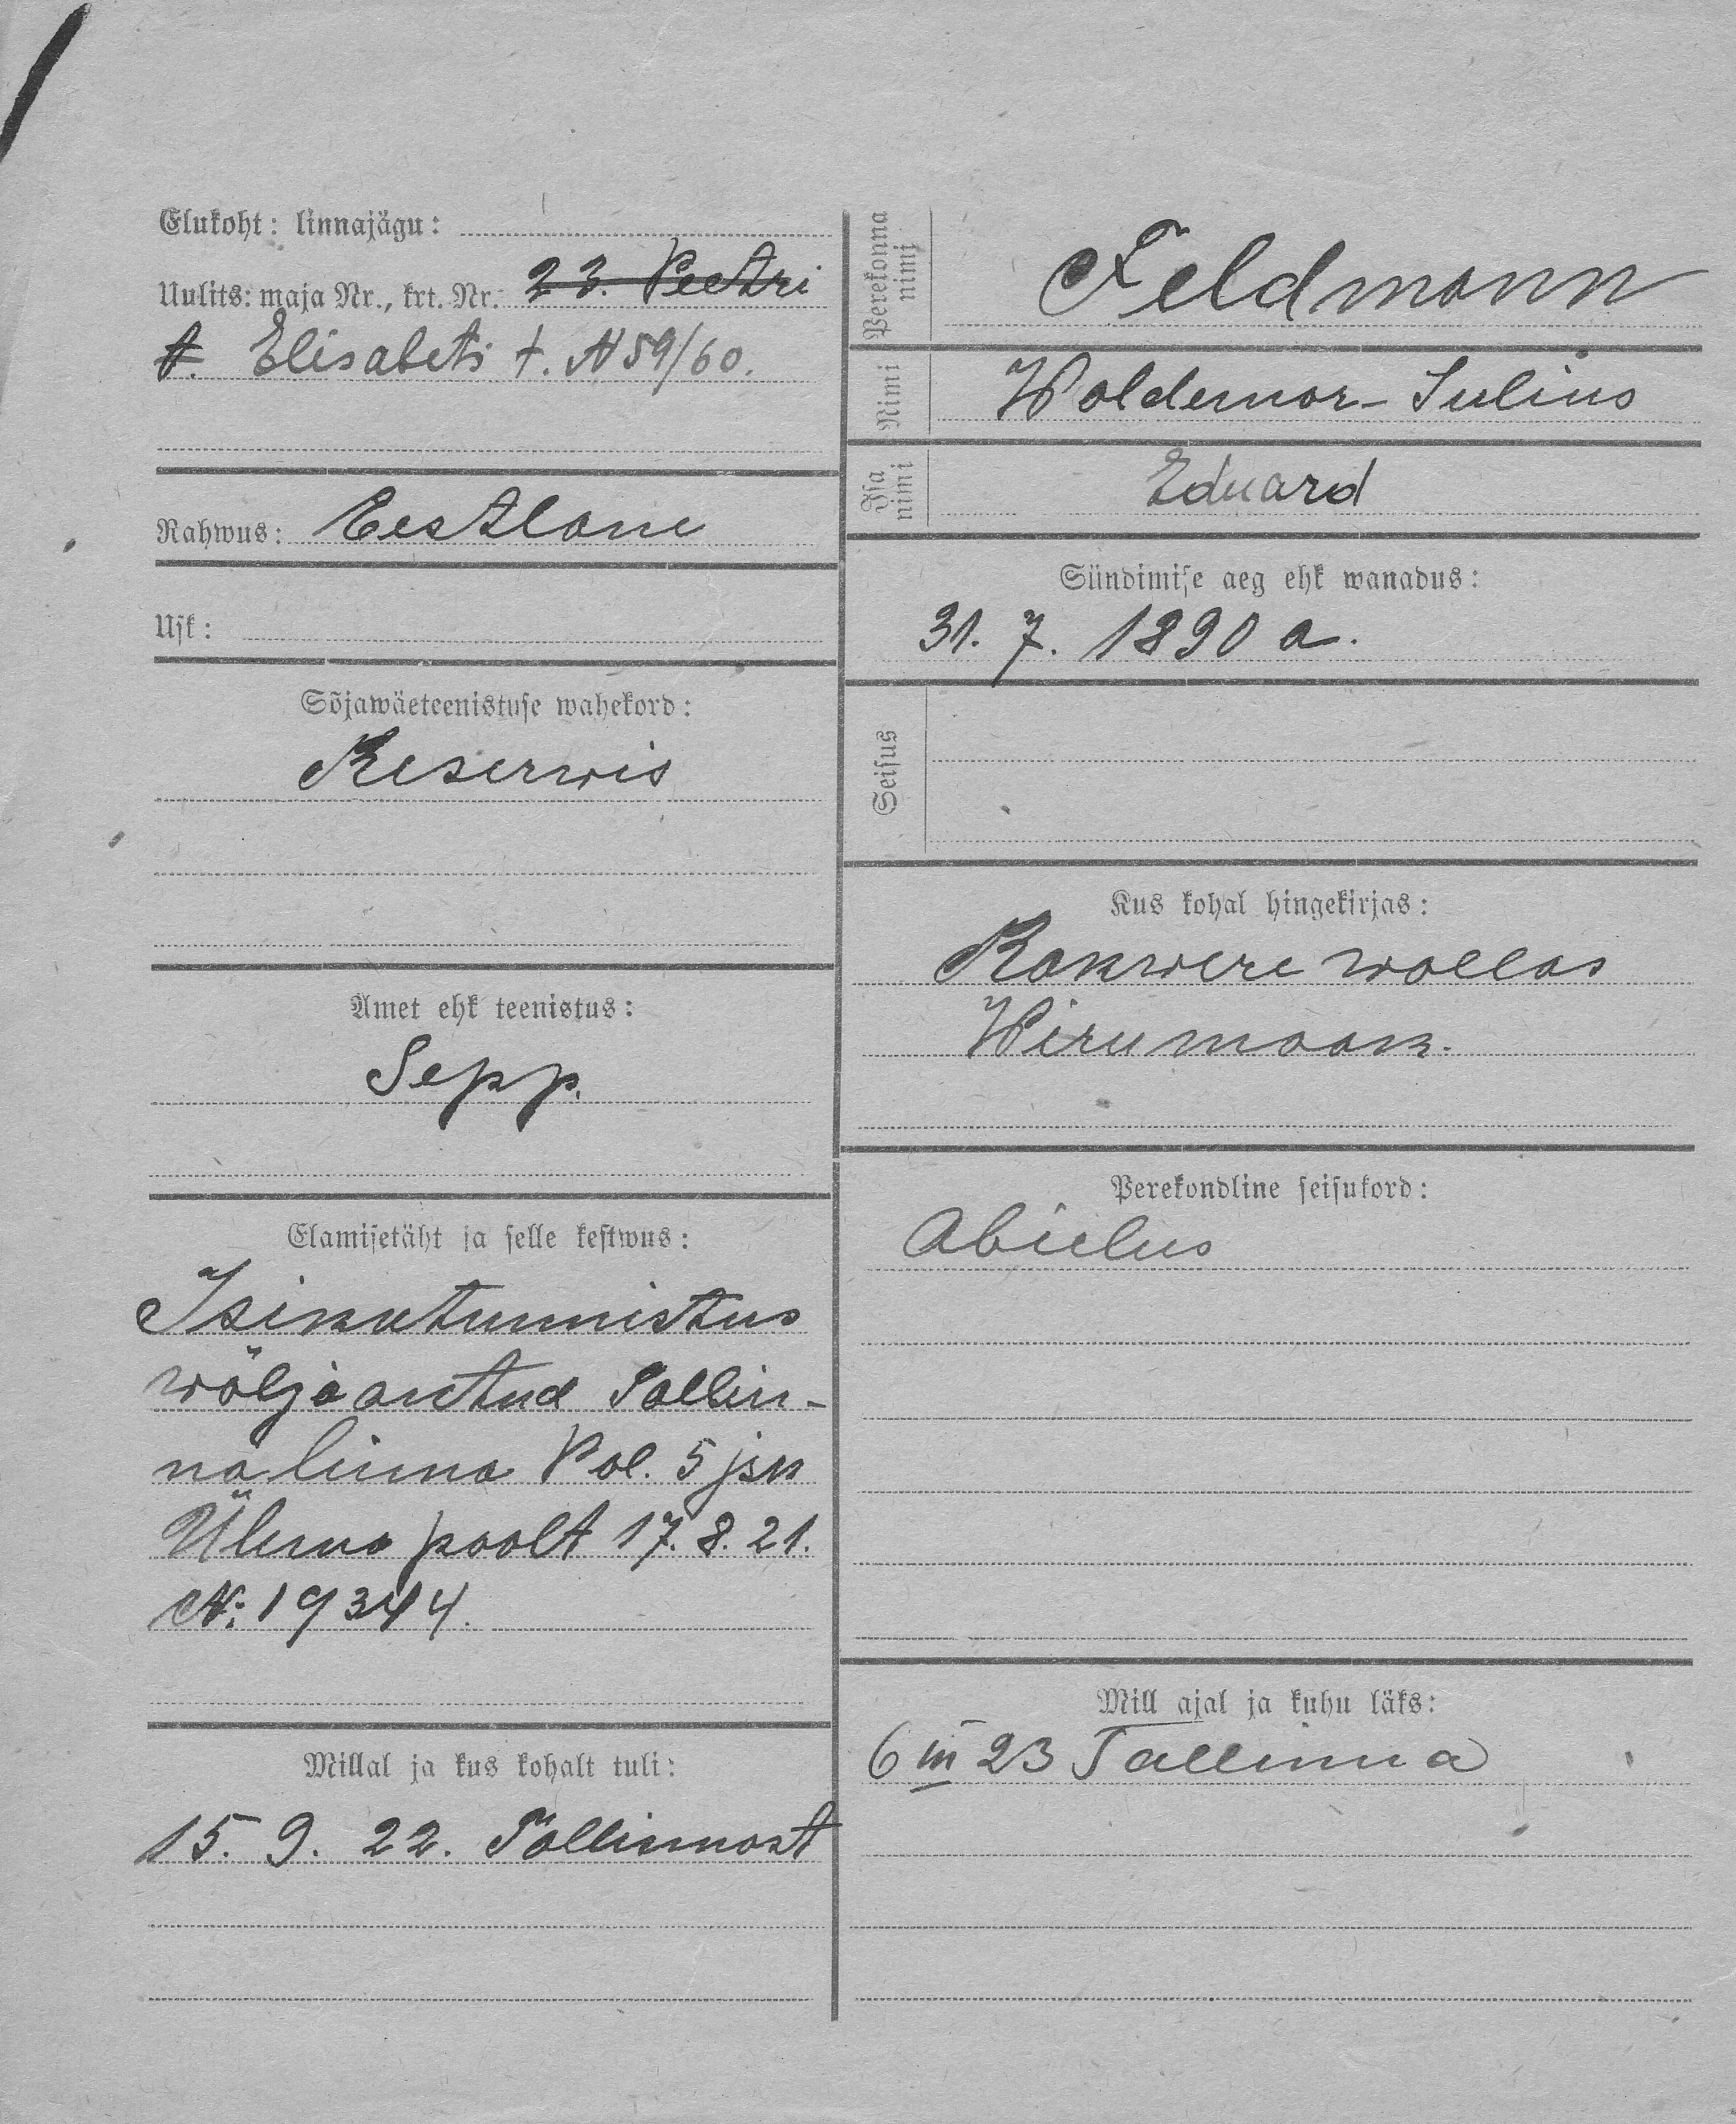 Elukoht: linnajägu:
Uulits: maja Nr., krt. Nr. 23. Peetri
t. Elisabeti t. N 59/60.
Rahwus: Eestlane
Usk:
Sõjawäeteenistuse wahekord:
Reserwis
Amet ehk teenistus:
Sepp.
Elamisetäht ja selle kestwus:
Isikutunnistus
wäljaantud Tallin-
na linna Pol. 5 jsk
Ülema poolt 17. 8. 21.
N: 19344.
Millal ja kus kohalt tuli:
15. 9. 22. Tallinnast
Perekonna nimi
Feldmann
Nimi
Woldemar-Julius
Isa nimi
Eduard
Sündimise aeg ehk wanadus:
31. 7. 1890 a.
Seisus
Kus kohal hingekirjas:
Rakwere wallas
Wirumaak.
Perekondline seisukord:
Abielus
Mill ajal ja kuhu läks:
6 III 23 Tallinna